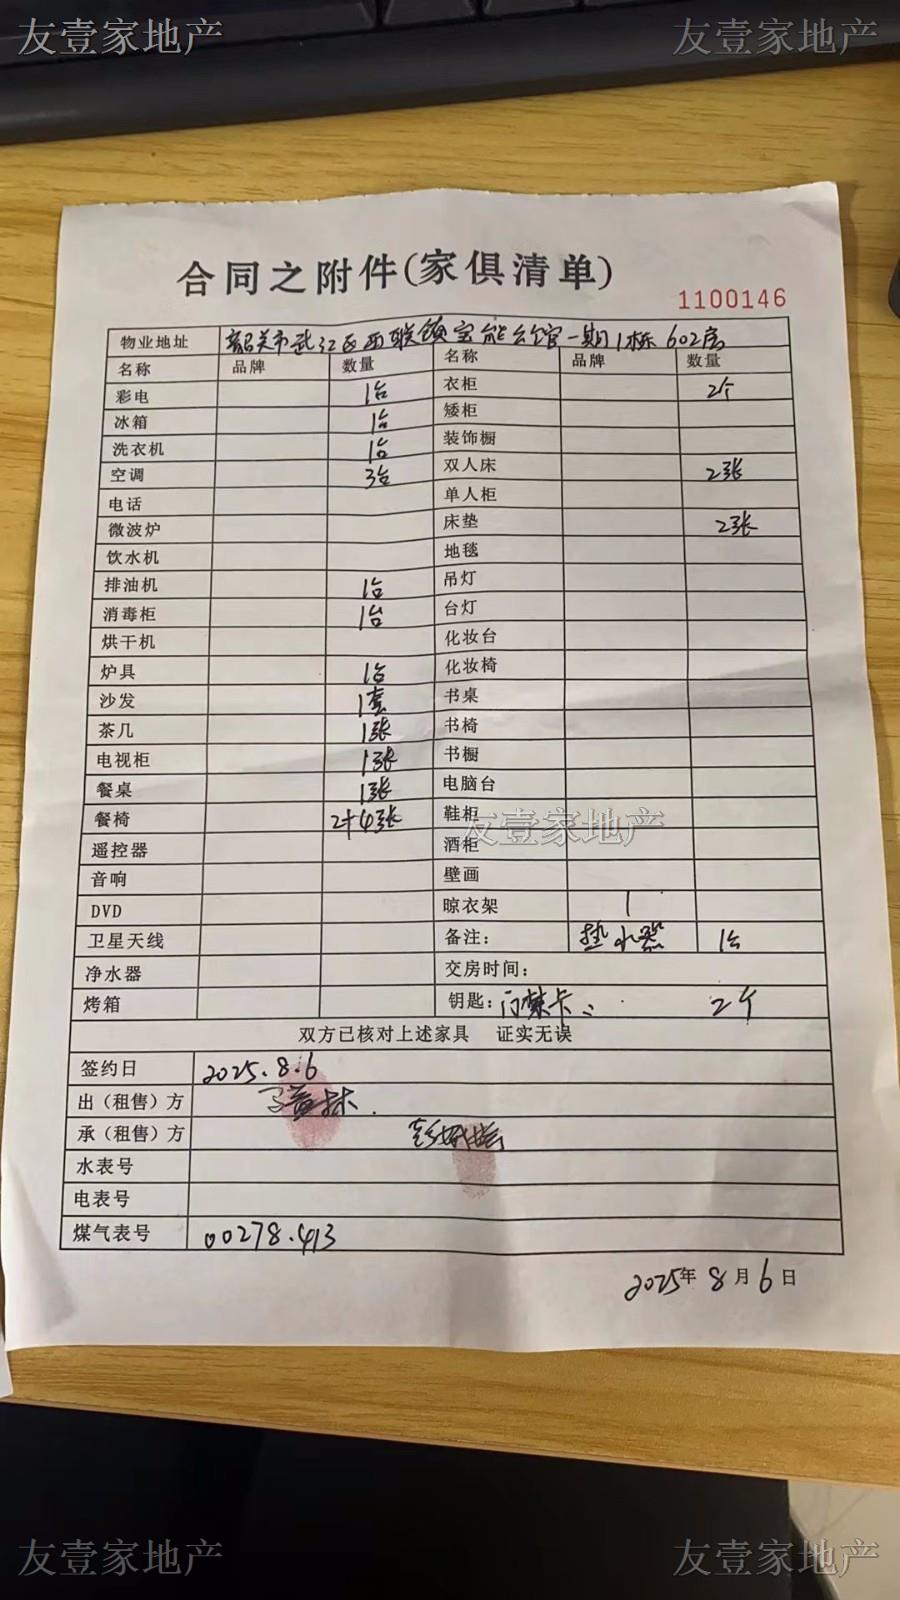 友壹家地产 友壹家地产
合同之附件(家俱清单)
1100146
物业地址 韶关市武江区西联镇宝能公馆一期1栋602房
名称 品牌 数量 名称 品牌 数量
彩电 1台 衣柜 2个
冰箱 1台 矮柜
洗衣机 1台 装饰橱
空调 3台 双人床 2张
电话 单人柜
微波炉 床垫 2张
饮水机 地毯
排油机 1台 吊灯
消毒柜 1台 台灯
烘干机 化妆台
炉具 1台 化妆椅
沙发 1套 书桌
茶几 1张 书椅
电视柜 1张 书橱
餐桌 1张 电脑台
餐椅 2+4张 鞋柜
友壹家地产
遥控器 酒柜
音响 壁画
DVD 晾衣架 1
卫星天线 备注: 热水器 1台
净水器 交房时间:
烤箱 钥匙: 门禁卡: 2个
双方已核对上述家具 证实无误
签约日 2025.8.6
出（租售）方
承（租售）方
水表号
电表号
煤气表号 00278.413
2025年8月6日
友壹家地产 友壹家地产